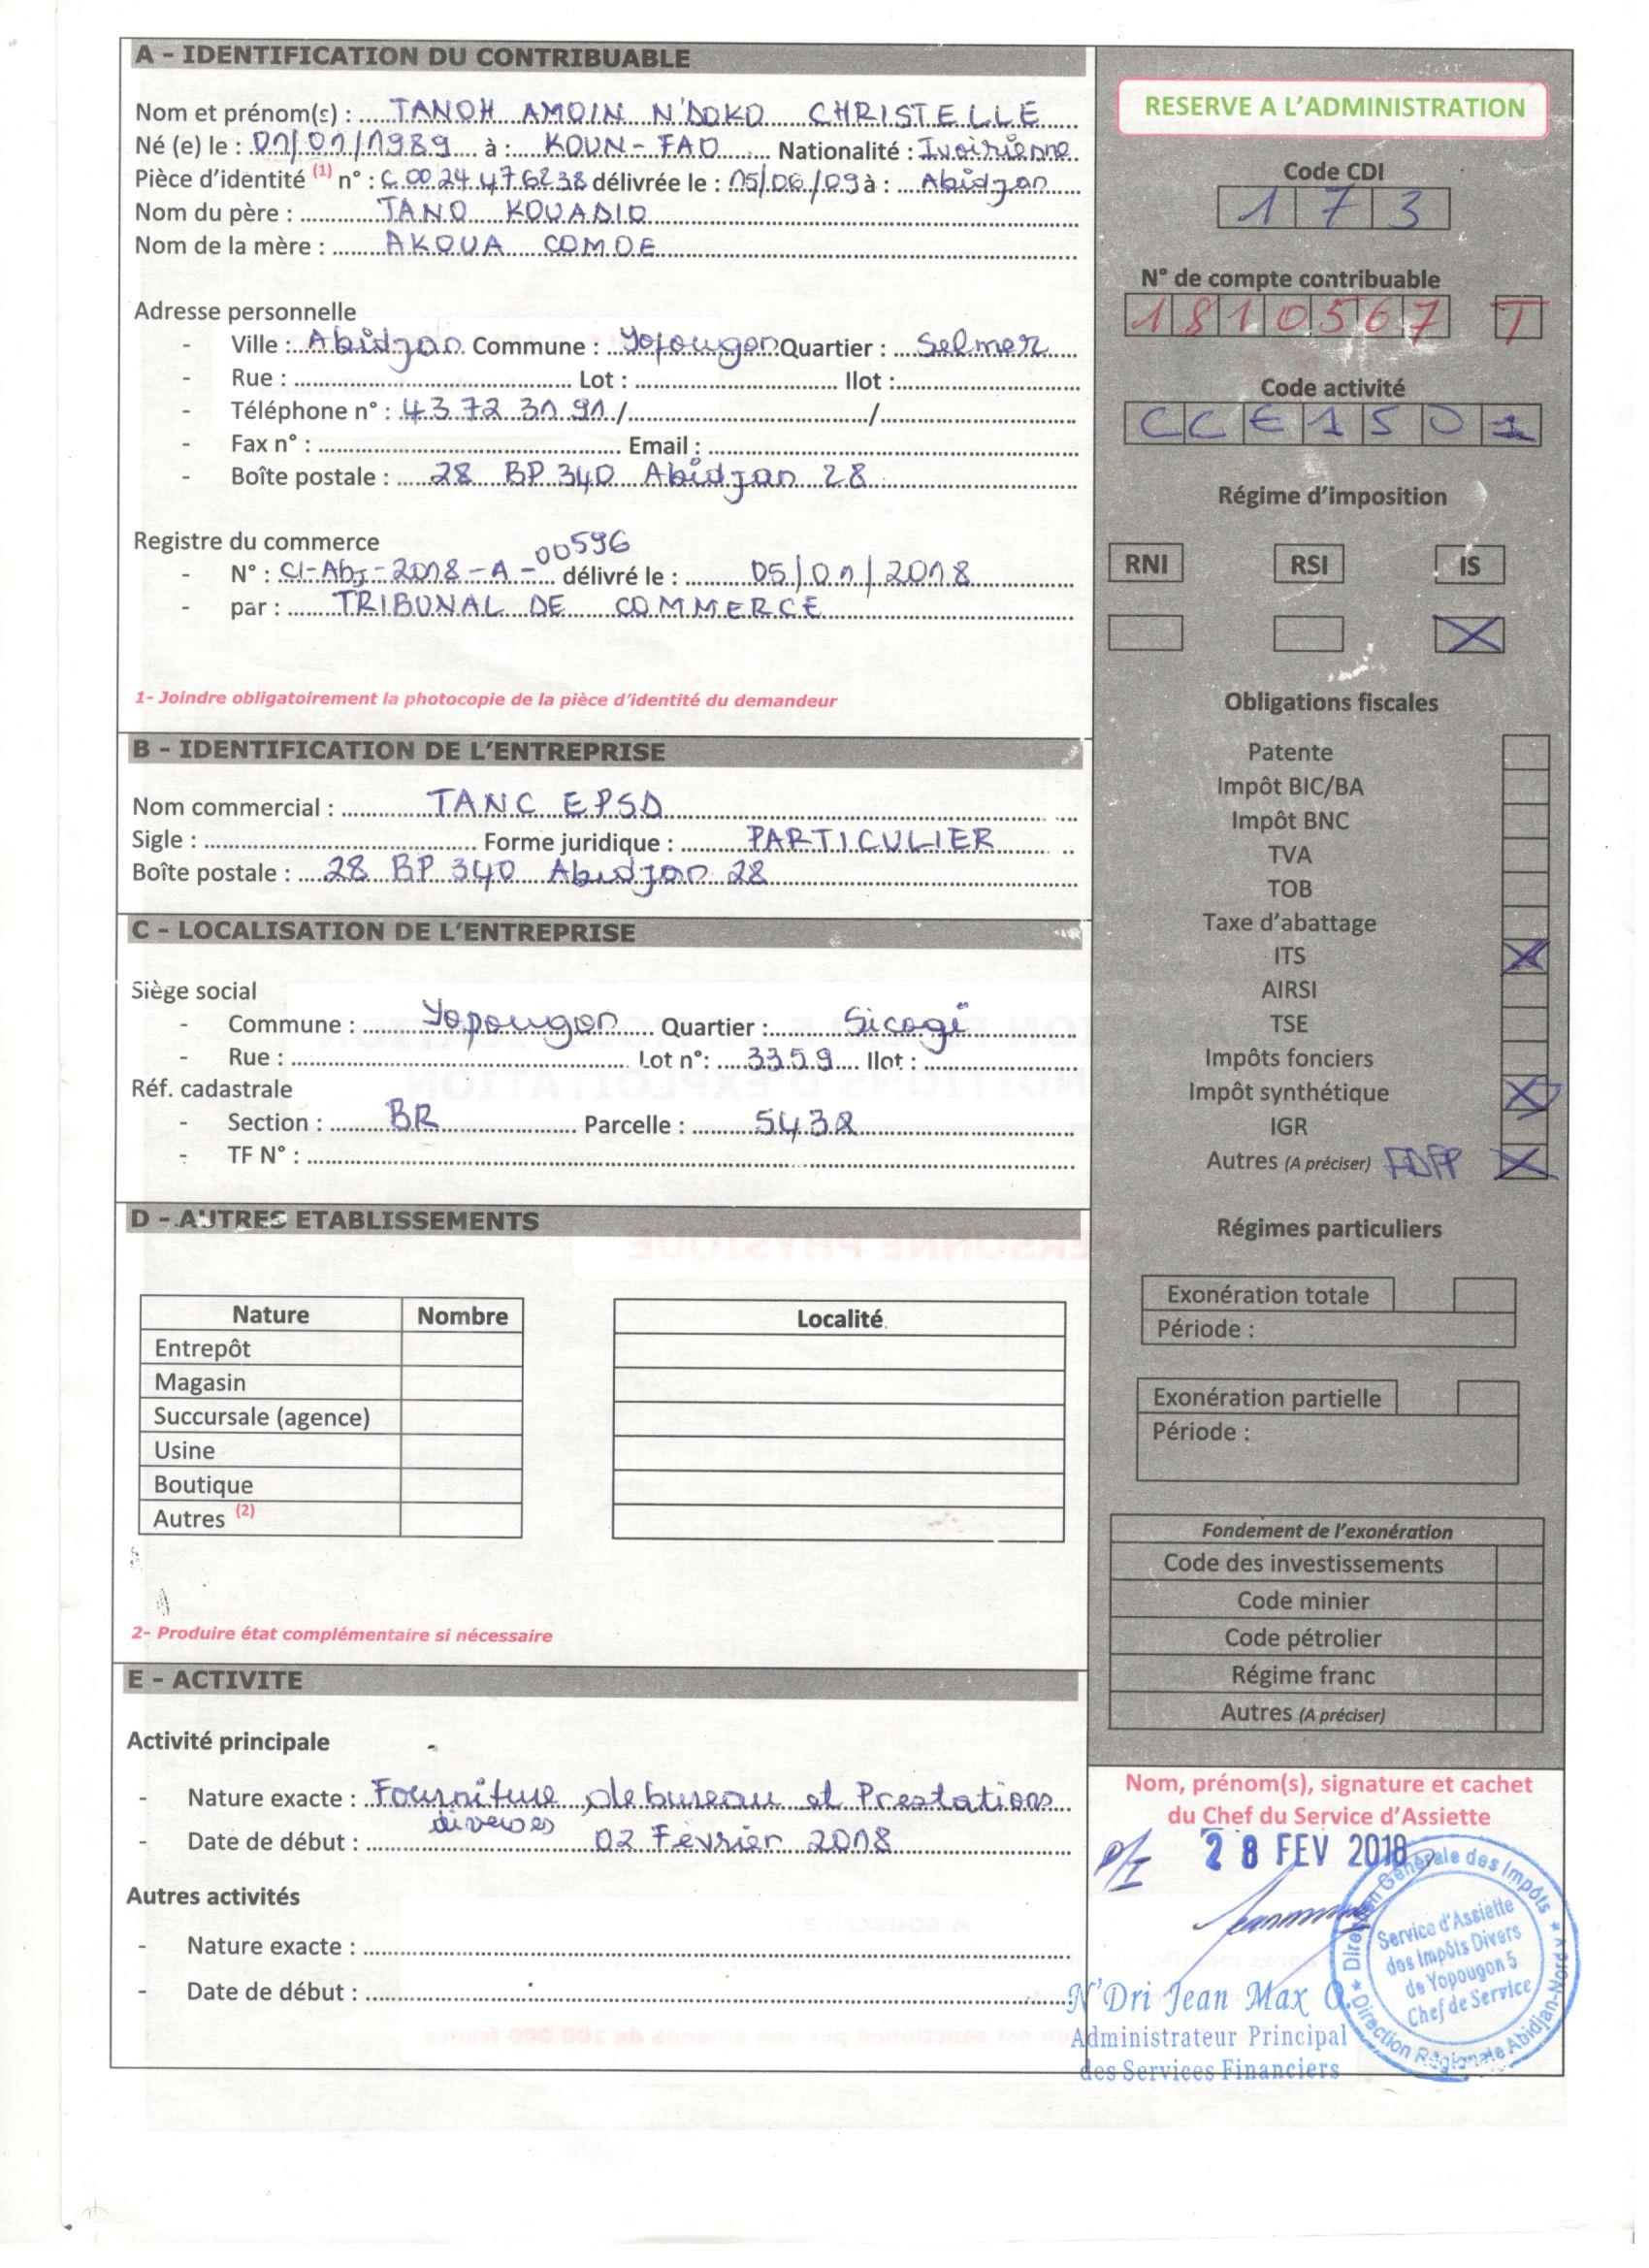 A - IDENTIFICATION DU CONTRIBUABLE
Nom et prénom(s) : TANOH AMOIN N'DOKO CHRISTELLE
Né (e) le : 01/01/1989 à : KOUN-FAO Nationalité : Ivoirienne
Pièce d'identité (1) n° : C 00 24 476238 délivrée le : 15/06/09 à : Abidjan
Nom du père : TANO KOUADIO
Nom de la mère : AKOUA COMOE
Adresse personnelle
- Ville : Abidjan Commune : Yopougon Quartier : Selmer
- Rue : Lot : Ilot :
- Téléphone n° : 43 72 31 91 / /
- Fax n° : Email :
- Boîte postale : 28 BP 340 Abidjan 28
Registre du commerce
- N° : CI-Abj-2018-A-00596 délivré le : 05/01/2018
- par : TRIBUNAL DE COMMERCE
1- Joindre obligatoirement la photocopie de la pièce d'identité du demandeur
B - IDENTIFICATION DE L'ENTREPRISE
Nom commercial : TANC EPSD
Sigle : Forme juridique : PARTICULIER
Boîte postale : 28 BP 340 Abidjan 28
C - LOCALISATION DE L'ENTREPRISE
Siège social
- Commune : Yopougon Quartier : Sicogi
- Rue : Lot n°: 3359 Ilot :
Réf. cadastrale
- Section : BR Parcelle : 5432
- TF N° :
D - AUTRES ETABLISSEMENTS
Nature Nombre Localité
Entrepôt
Magasin
Succursale (agence)
Usine
Boutique
Autres (2)
2- Produire état complémentaire si nécessaire
E - ACTIVITE
Activité principale
- Nature exacte : Fourniture de bureau et Prestations
diverses
- Date de début : 02 Février 2018
Autres activités
- Nature exacte :
- Date de début :
RESERVE A L'ADMINISTRATION
Code CDI
1 7 3
N° de compte contribuable
1 8 1 0 5 6 7 T
Code activité
C C E 1 5 0 1
Régime d'imposition
RNI RSI IS
X
Obligations fiscales
Patente
Impôt BIC/BA
Impôt BNC
TVA
TOB
Taxe d'abattage
ITS X
AIRSI
TSE
Impôts fonciers
Impôt synthétique X
IGR
Autres (A préciser) FDFP X
Régimes particuliers
Exonération totale
Période :
Exonération partielle
Période :
Fondement de l'exonération
Code des investissements
Code minier
Code pétrolier
Régime franc
Autres (A préciser)
Nom, prénom(s), signature et cachet
du Chef du Service d'Assiette
P/I 28 FEV 2018
Direction Générale des Impôts
Service d'Assiette
des Impôts Divers
de Yopougon 5
Chef de Service
Direction Régionale Abidjan-Nord V
N'Dri Jean Max O.
Administrateur Principal
des Services Financiers